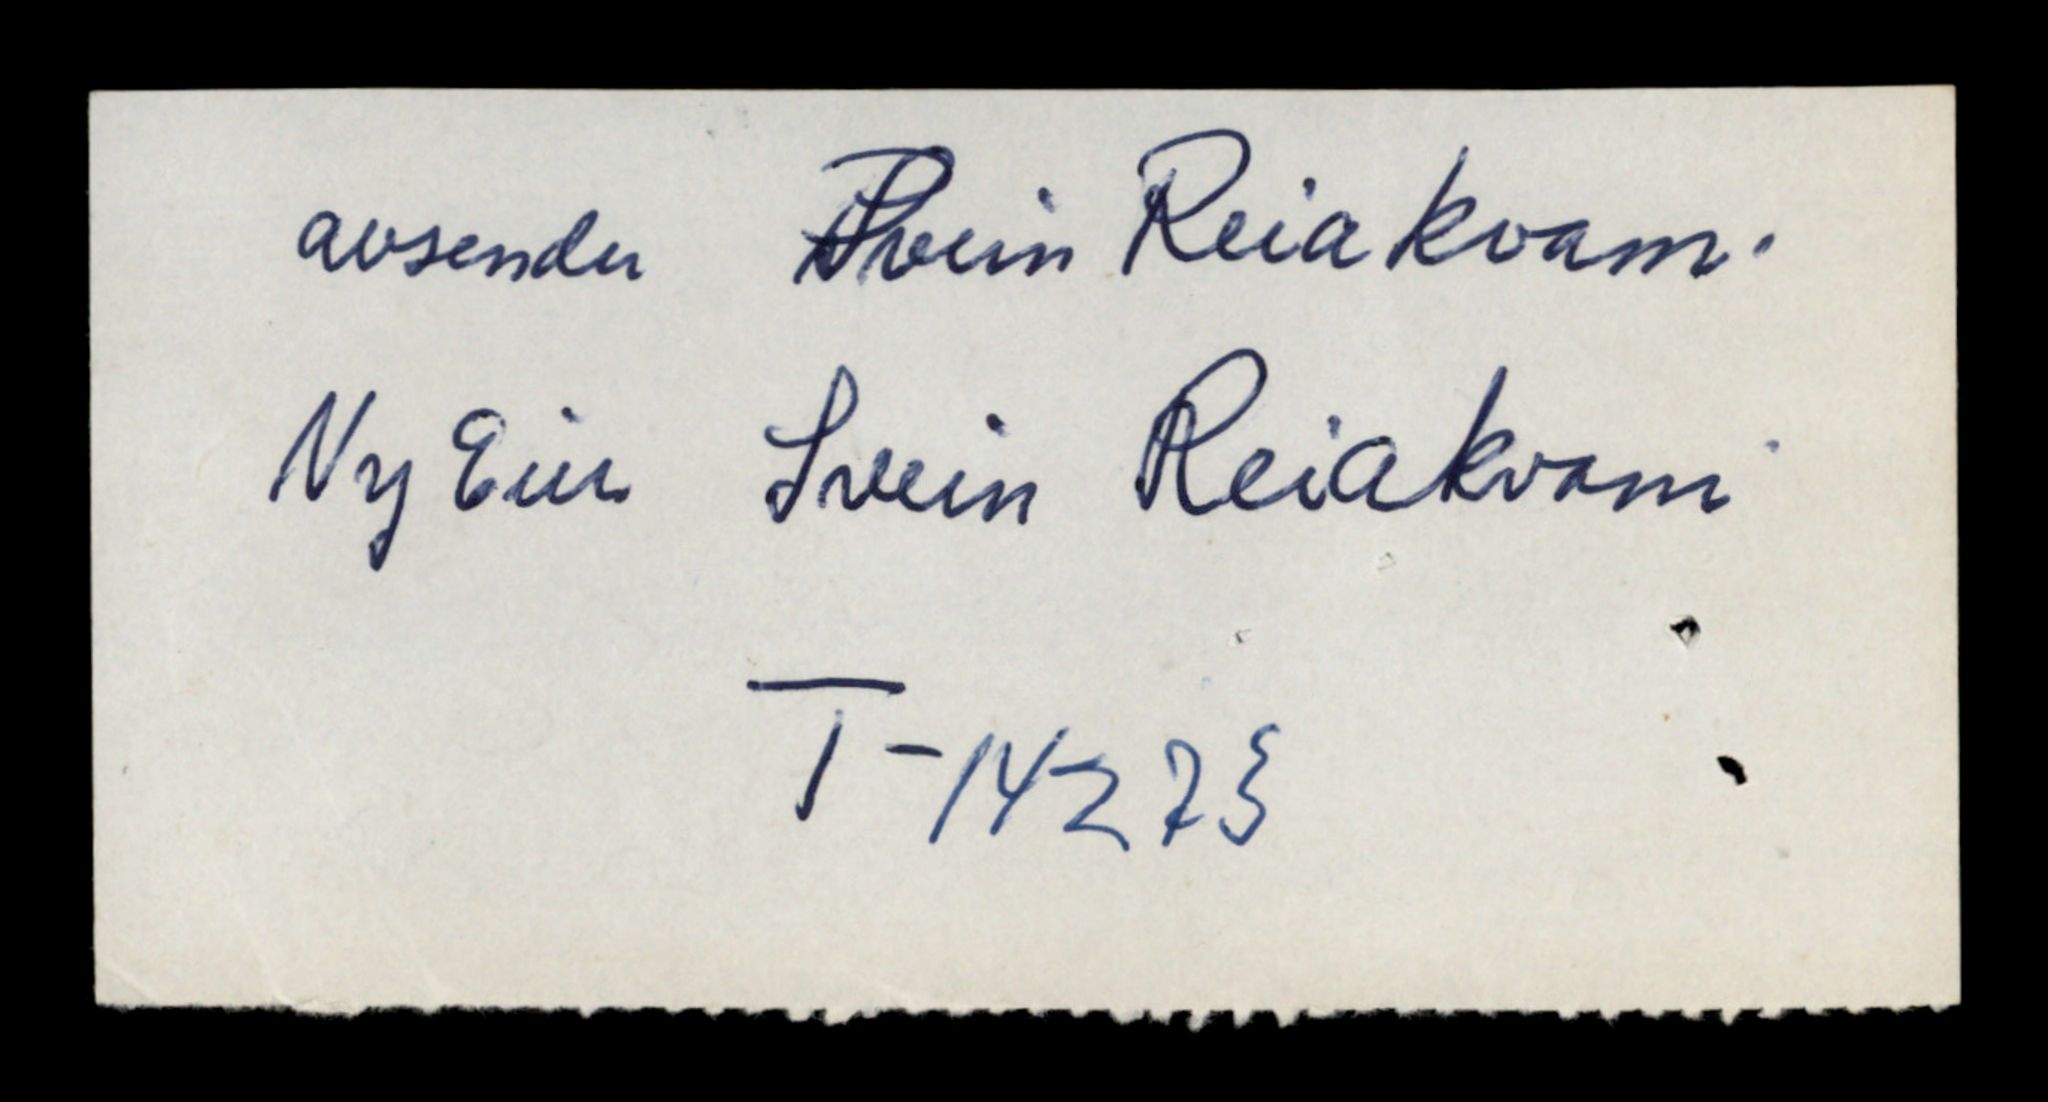 avsender Svein Reiakvam.
Ny Eier Svein Reiakvam
T-14273